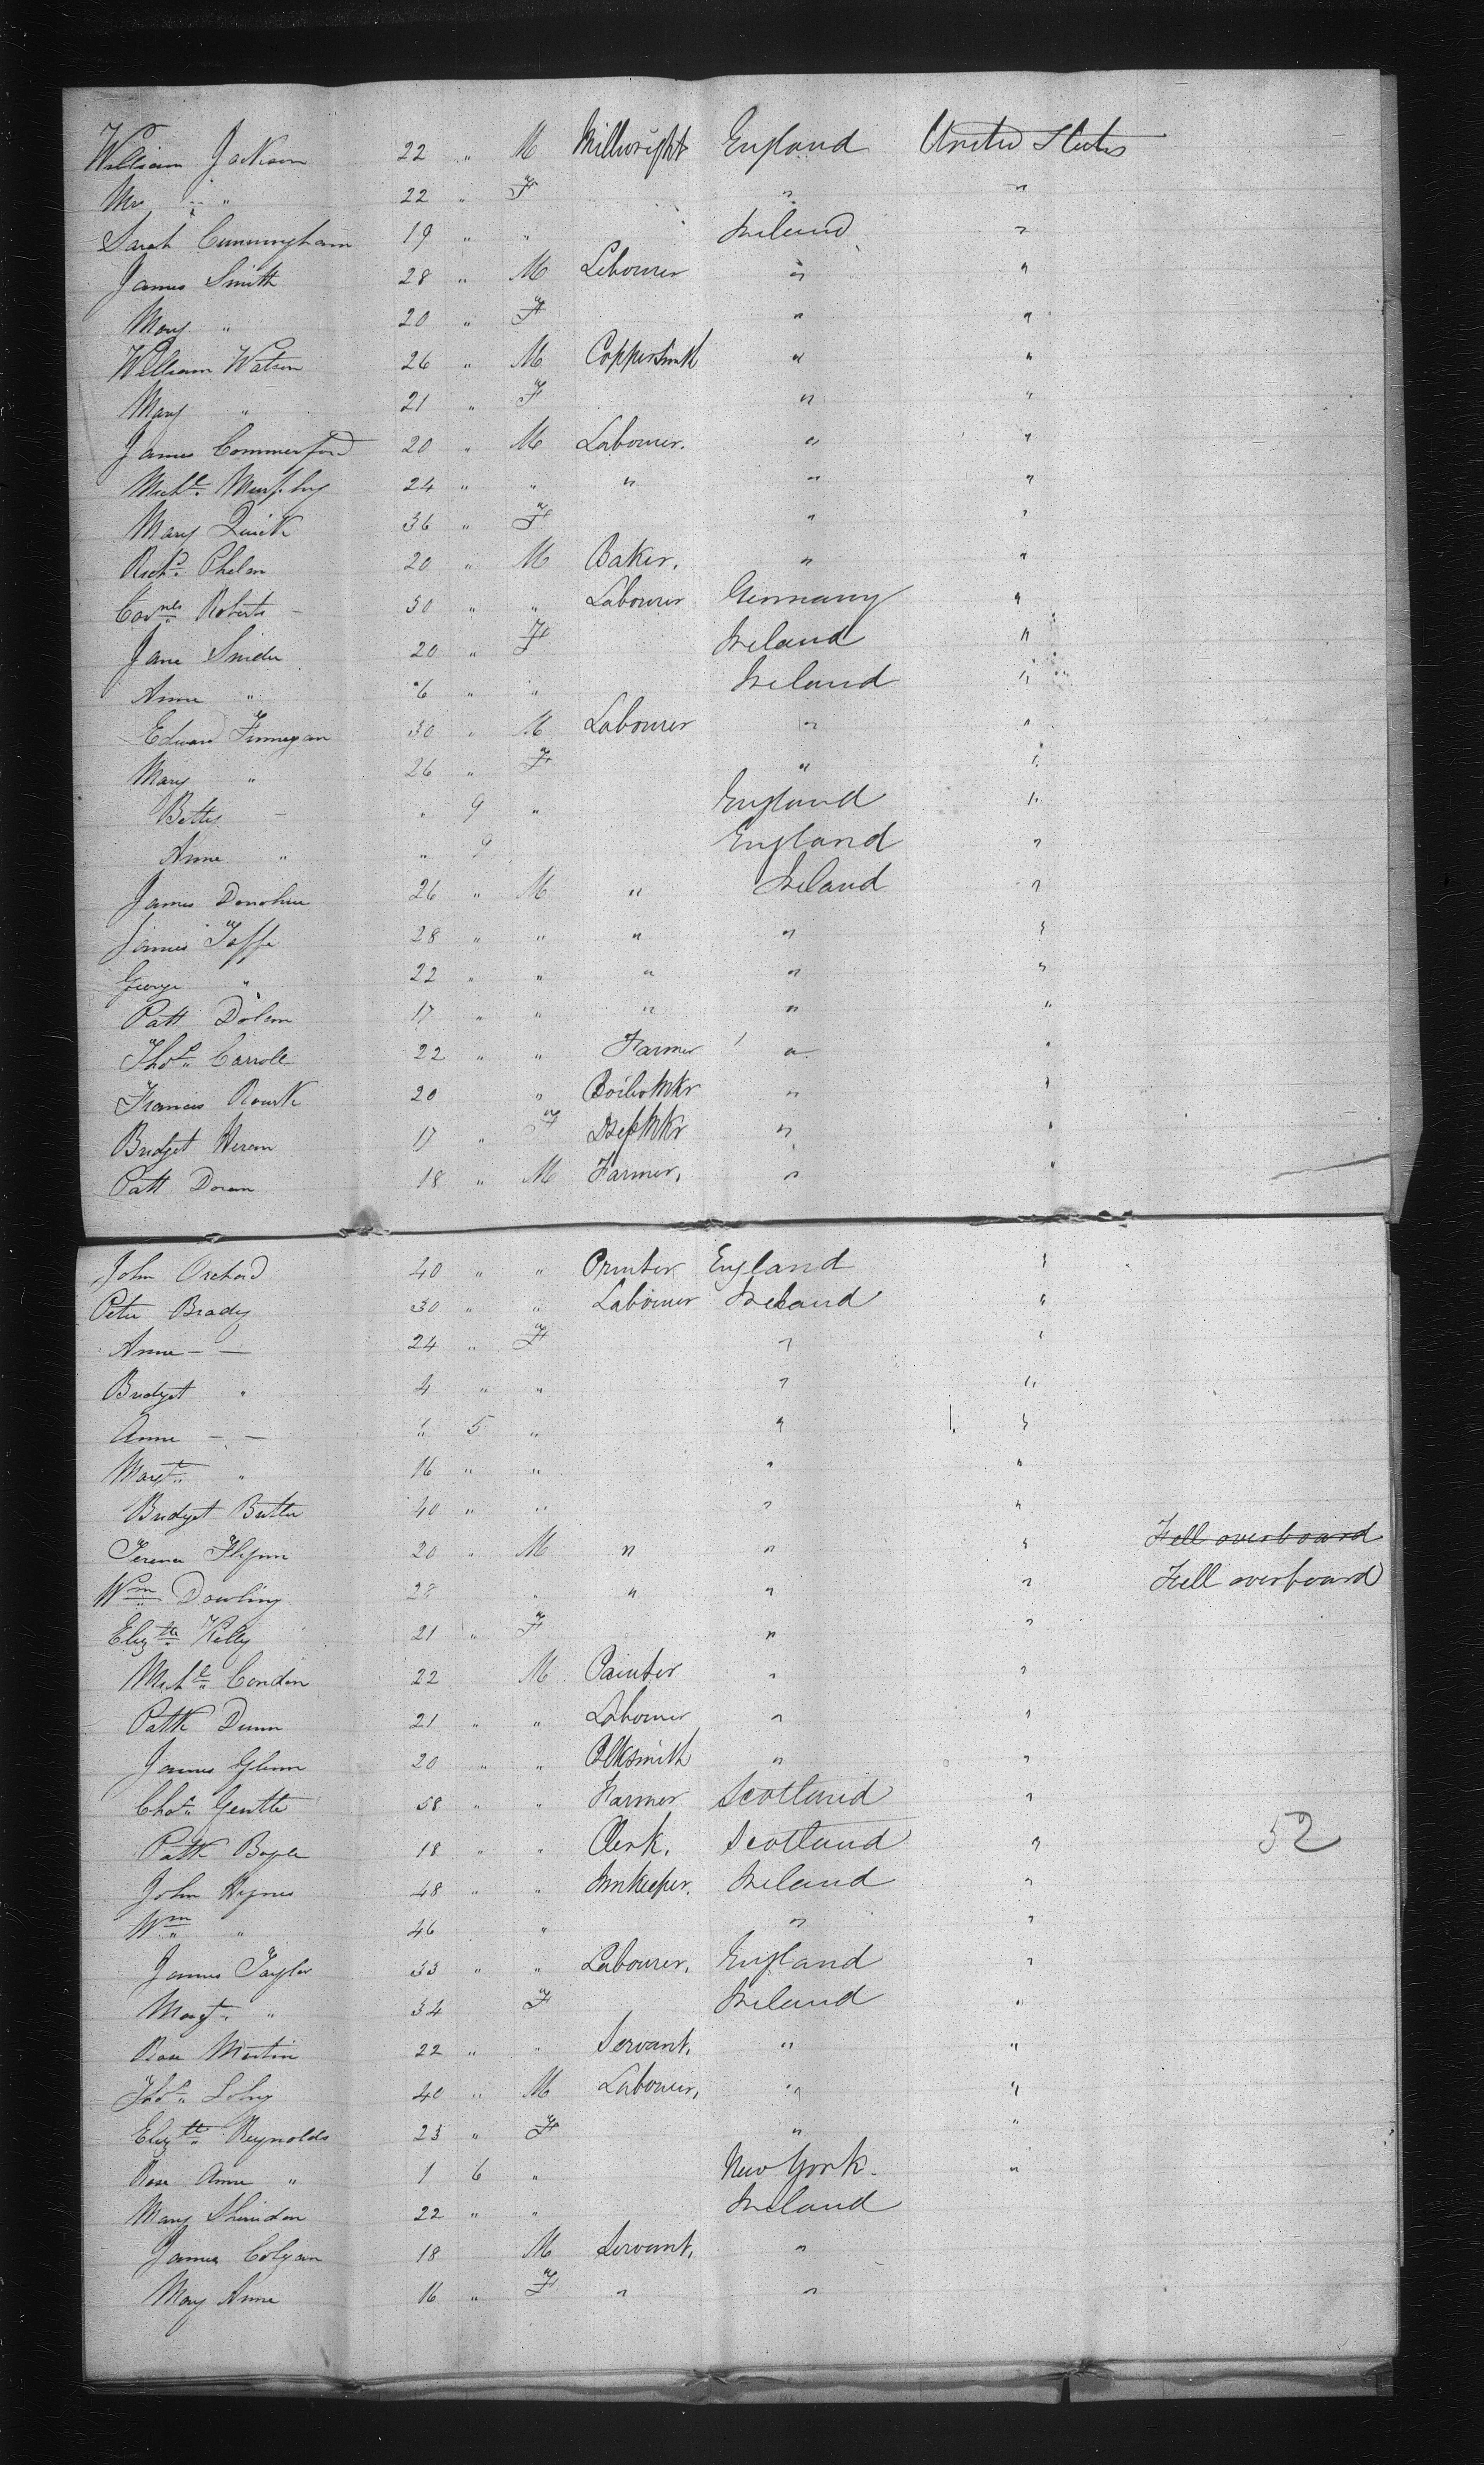 William Jackson 22 " M Millwright England United States
Mrs " " 22 " F " "
Sarah Cunningham 19 " " Ireland "
James Smith 28 " M Labourer " "
Mary " 20 " F " "
William Watson 26 " M Coppersmith " "
Mary " 21 " F " "
James Commerford 20 " M Labourer. " "
Michl. Murphy 24 " " " " "
Mary Quirk 36 " F " "
Richd. Phelan 20 " M Baker. " "
Roberts - 30 " " Labourer Germany "
Jane Snider 20 " F Ireland "
Anne " 6 " " Ireland "
Edward Finnegan 30 " M Labourer " "
Mary " 26 " F " "
Betty - " 9 " England "
Anne " " 9 England "
James Donohue 26 " M " Ireland "
James Taffe 28 " " " " "
George " 22 " " " " "
Patt Dolan 17 " " " " "
Thos. Carroll 22 " " Farmer " "
Francis Rourk 20 " BoilerMkr " "
Bridget 17 " F DssMkr " "
Patt Doran 18 " M Farmer. " "
John Orchard 40 " " Printer England "
Peter Brady 30 " " Labourer Ireland "
Anne - - 24 " F " "
Bridget " 4 " " " "
Anne - - " 5 " " "
Margt. " 16 " " " "
Bridget Butler 40 " " " "
Terence Flynn 20 " M " " " Fell overboard
Wm Dowling 28 " " " " Fell overboard
Elizth. Kelly 21 " F " "
Michl. Condon 22 M Painter " "
Patk Dunn 21 " " Labourer " "
James Glenn 20 " " Blksmith " "
Chas. Gentle 58 " " Farmer Scotland "
Patk Boyle 18 " " Clerk. Scotland " 52
John Hynes 48 " " Innkeeper. Ireland "
Wm " 46 " " "
James Taylor 33 " " Labourer. England "
Margt. " 34 F Ireland "
Rose Martin 22 " " Servant. " "
Thos. 40 " M Labourer, " "
Elizth. Reynolds 23 " F " "
Rose Anne " 1 6 " New York. "
Mary Sheridan 22 " " Ireland
James Colgan 18 M Servant, "
Mary Anne 16 " F " "